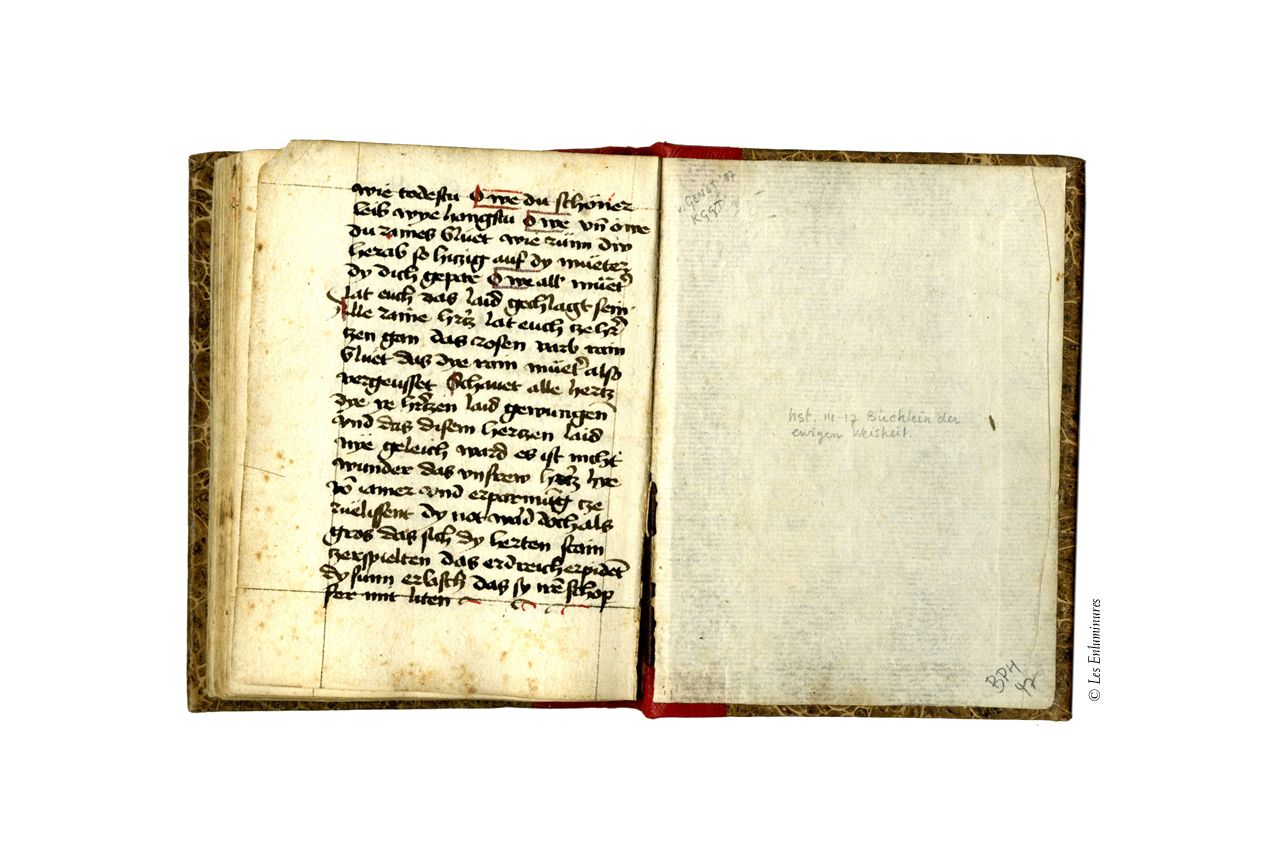 wie todestu O we du schöner
leib wye hangstu O we vn̄ o we
du raines bluet wie rünn diw
herab so hiczig auf dy mueter
dy dich gepar O we all müet̄
lat euch das laid gechlagt sein
Alle raine hr̄cz lat euch cze hr̄
czen gan das rosen varb rain
bluet das dye rain müet̄ also
vergeusset Schauet alle hertz
dye ye hr̄tzen laid gewungen̄
vnd das disem hertzen laid
nye geleich ward es ist nicht
wunder das vnsrew hr̄tz hye
vō iamer vnd erparmūg cze
dy not ward doch als
gros das sich dy herten stain
czerspielten das erd̄reich erpidet̄
dy sunn erlasch das sy irē schop
fer mit liten
GENET '87
KGGT
hst. 14-17 Büchlein der
ewigen Weisheit.
BPH
47
© Les Enluminures